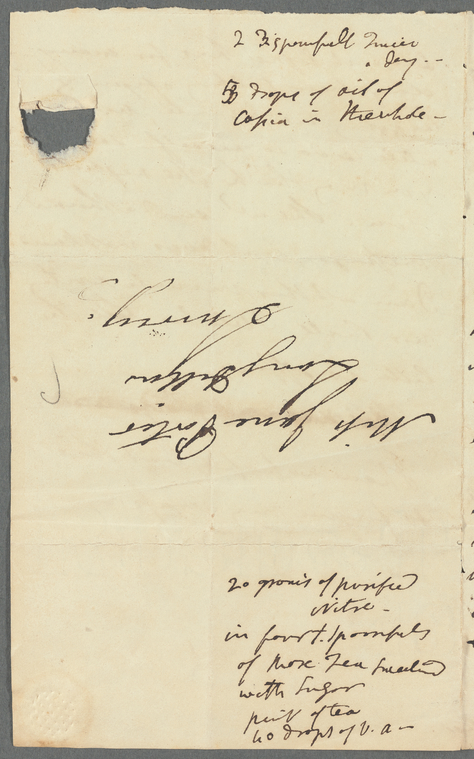 2 Tispoonfull Twice
a day --
drops of oil of
Casia in the whole -
Miss Jane Porter
Long Ditton
Surrey.
20 grains of purified
Nitre -
in four t. spoonfuls
of Rose Tea Sweetend
with Sugar
of tea
40 drops of V. a -